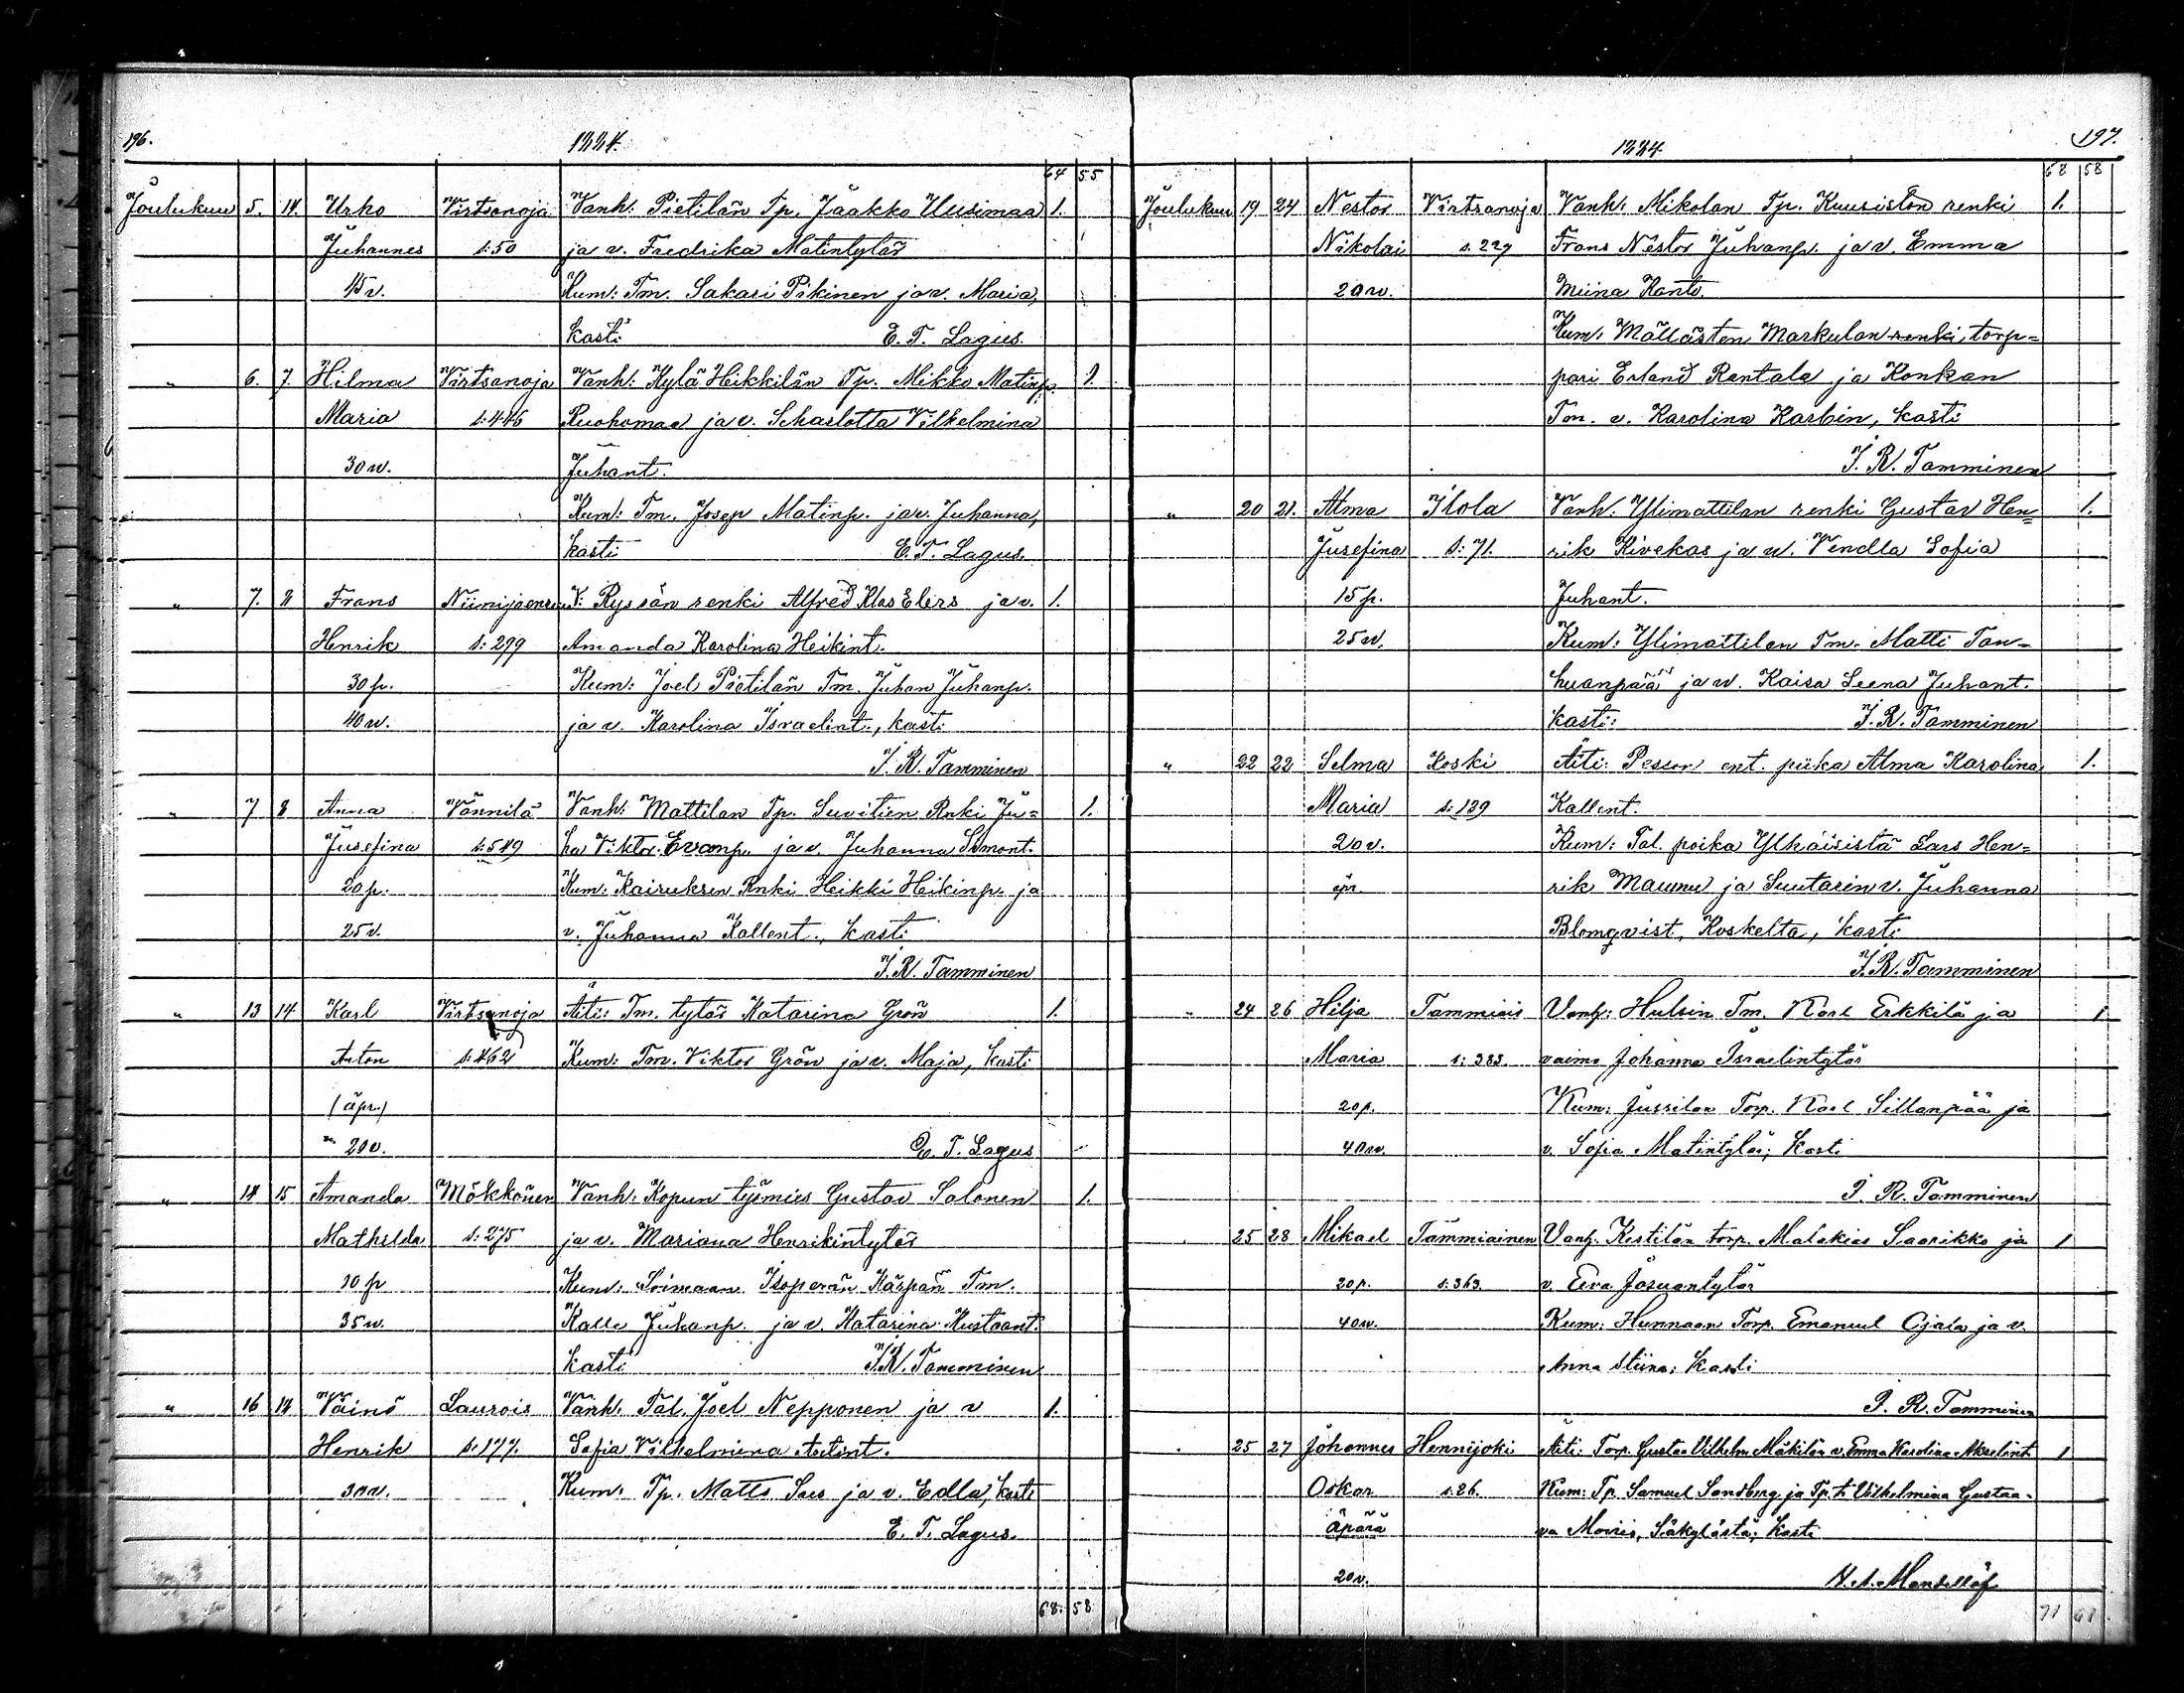 196.
1884.
64 55
Joulukuu 5. 14. Urho Virtsanoja Vanh: Pietilän Tp. Jaakko Uusimaa 1.
Juhannes s:50 ja v. Fredrika Matintytär
45 v. Kum: Tm. Sakari Pikinen ja v. Maria,
kasti E. T. Lagus.
" 6. 7. Hilma Virtsanoja Vanh: Kylä Heikkilän Tp. Mikko Matinp. 1.
Maria s:446 Ruohomaa ja v. Scharlotta Vilhelmina
30 v. Juhant.
Kum: Tm. Josep Matinp. ja v. Juhanna,
kasti E. T. Lagus.
" 7. 8 Frans Niinijoensuu V: Ryssän renki Alfred Klas Elers ja v. 1.
Henrik s:299 Amanda Karolina Heikint.
30 p. Kum: Joel Pietilän Tm. Juhan Juhanp.
40 v. ja v. Karolina Israelint., kasti
J. R. Tamminen
" 7 8 Anna Vännilä Vanh: Mattilan Tp. Suvitien Rnki Ju= 1.
Jusefina s:549 ha Viktor Evanp. ja v. Juhanna Simont.
20 p. Kum: Kairuksen Rnki Heikki Heikinp. ja
25 v. v. Juhanna Kallent., kasti
J. R. Tamminen
" 13 14 Karl Virtsanoja Äiti: Tm. tytär Katarina Grön 1.
Anton s:462 Kum: Tm. Viktor Grön ja v. Maja, kasti
(äpr.)
" 20 v. E. T. Lagus
" 14 15 Amanda Mäkkönen Vanh: Kopun työmies Gustav Salonen 1.
Mathilda s:275 ja v. Mariana Henrikintytär
30 p Kum: Loimaan Isoperän Kärpän Tm.
35 v. Kalle Juhanp. ja v. Katarina Kustaant.
kasti J. R. Tamminen
" 16 14 Väinö Laurois Vanh: Tal. Joel Nepponen ja v 1.
Henrik s.177. Sofia Vilhelmina Antint.
30 v. Kum: Tp. Matts Sus ja v. Edla, kasti
E. T. Lagus.
68. 58
197.
1884.
68 58
Joulukuu 19 24 Nestor Virtsanoja Vanh: Mikolan Tp. Kuusiston renki 1.
Nikolai s. 229 Frans Nestor Juhanp. ja v. Emma
20 v. Miina Kant.
Kum: Mällästen Markulan renki, torp=
pari Erland Rantala ja Konkan
Tm. v. Karolina Karbin, kasti
J. R. Tamminen
" 20 21. Alma Ilola Vanh: Ylimattilan renki Gustav Hen= 1.
Jusefina s:71. rik Kivekas ja v. Vendla Sofia
15 p. Juhant.
25 v. Kum: Ylimattilan Tm. Matti Tan=
huanpää ja v. Kaisa Leena Juhant.
kasti: J. R. Tamminen
" 22 22 Selma Koski Äiti: Pessor ent. piika Alma Karolina 1.
Maria s:139 Kallent.
20 v. Kum: Tal. poika Ylhäisistä Lars Hen=
äpr. rik Maunu ja Suutarin v. Juhanna
Blomqvist, Koskelta, kasti
J. R. Tamminen
" 24 26 Hilja Tammiais Vanh: Hulsin Tm. Karl Erkkilä ja 1
Maria s: 383. vaimo Johanna Israelintytär
20 p. Kum: Jussilan Torp. Karl Sillanpää ja
40 v. v. Sofia Matintytär; kasti
J. R. Tamminen
25 28 Mikael Tammiainen Vanh. Kestilän torp. Malakias Saarikko ja 1
20 p. s:363. v. Eeva Josuantytär
40 v. Kum: Hunnaan Torp. Emanuel Ojala ja v.
Anna Stiina; kasti
J. R. Tamminen
25 27 Johannes Hennijoki Äiti: Torp. Gustaa Vilhelm Mäkilän v. Emma Karolina Akselint 1
Oskar s.26. Kum: Tp. Samuel Sandberg ja Tp. t. Vilhelmina Gustaa-
äpärä va Moisio, Säkylästä; kasti
20 v.
71 61.